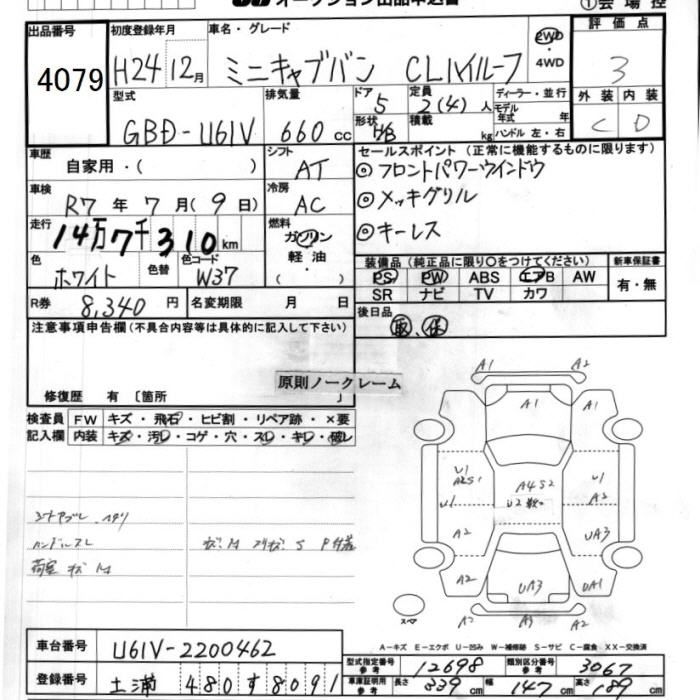 オークション出品申込書
①会場控
出品番号 4079
初度登録年月 H24 12月
車名・グレード ミニキャブバン CLハイルーフ
2WD
・4WD
評価点 3
型式 GBD-U61V
排気量 660 cc
ドア 5
形状 HB
定員 2(4) 人
積載 kg
ディーラー・並行
モデル年式 年式
ハンドル 左・右
外装 内装
C D
車歴 自家用・( )
シフト AT
セールスポイント(正常に機能するものに限ります)
◎フロントパワーウインドウ
◎メッキグリル
◎キーレス
車検 R7 年 7 月 ( 9 日)
冷房 AC
走行 14万7千310 km
燃料 ガソリン
軽油・
色 ホワイト 色替 色コード W37
装備品(純正品に限り○をつけてください)
PS PW ABS エアB AW
SR ナビ TV カワ
新車保証書
有・無
R券 8,340 円
名変期限 月 日
後日品 取、保
注意事項申告欄(不具合内容等は具体的に記入して下さい)
修復歴 有 〔箇所 〕
原則ノークレーム
検査員記入欄
FW キズ・飛石・ヒビ割・リペア跡・×要
内装 キズ・汚レ・コゲ・穴・スレ・キレ・破レ
ハンドルスレ
荷室 キズ M
A1 A2
A1 A1
U1 A2S1 A4S2 U1
U1 U2 A2
A2 UA3
A2 UA3 UA1
スペア A2 A3 A2
A-キズ E-エクボ U-凹み W-補修跡 S-サビ C-腐食 XX-交換済
車台番号 U61V-2200462
登録番号 土浦 480 す 8091
型式指定番号 参考 12698
類別区分番号 参考 3067
車庫証明用 参考 長さ 339 幅 147 高さ 189 cm